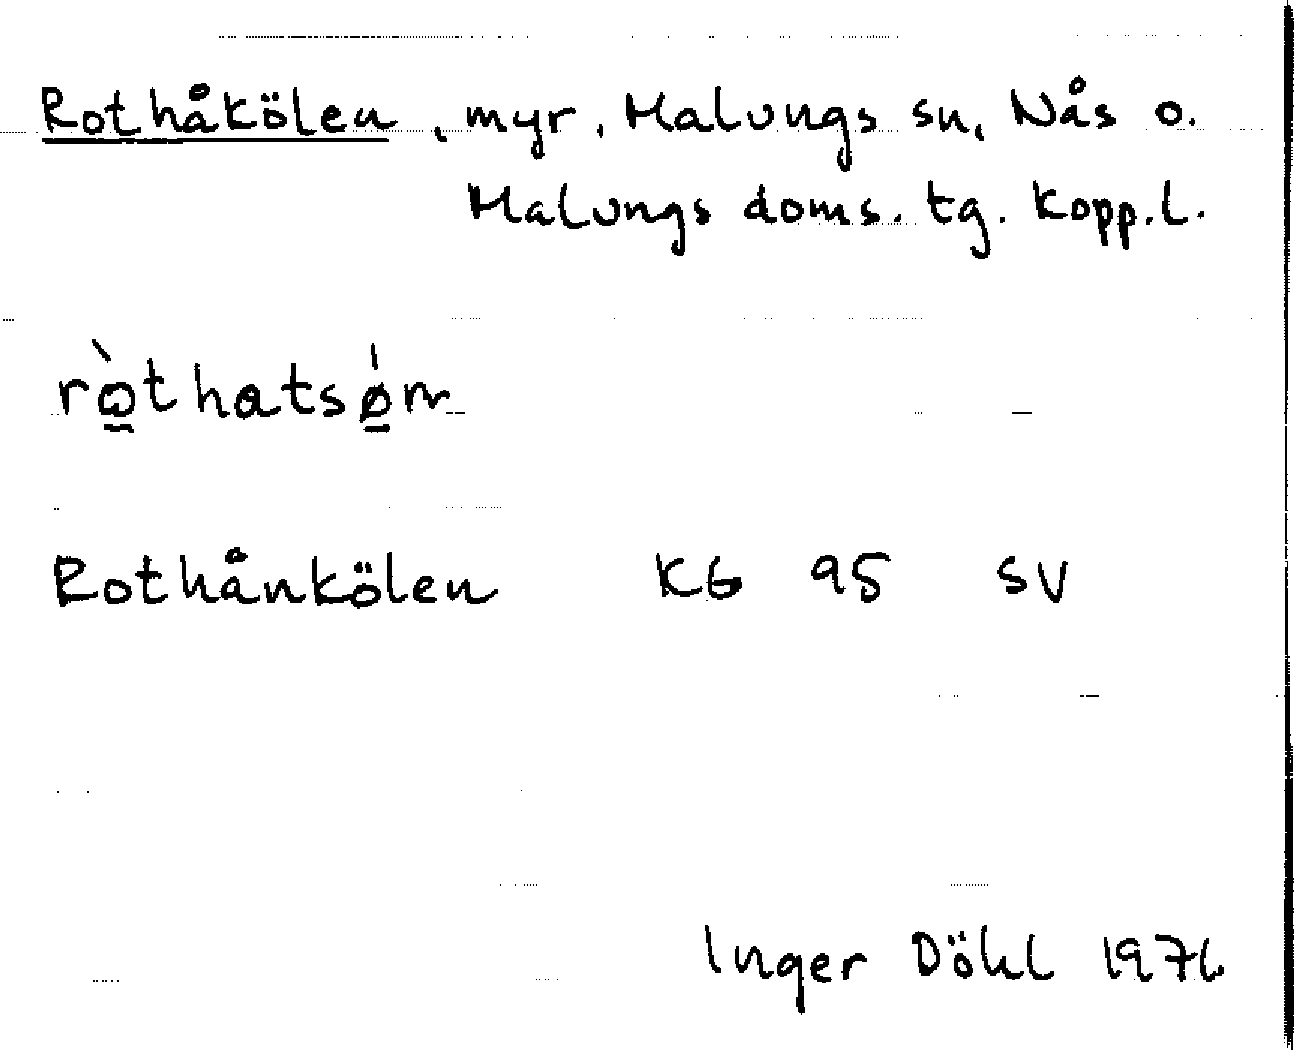 Rothåkölen, myr, Malungs sn, Nås o.
Malungs doms. tg. Kopp.l.
ròthatsǿm
Rothånkölen KG 95 SV
Inger Döhl 1976